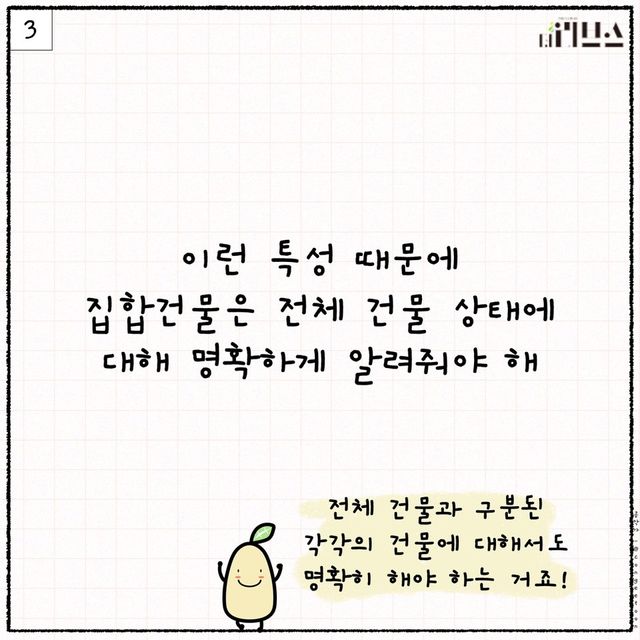 3
이런 특성 때문에
집합건물은 전체 건물 상태에
대해 명확하게 알려줘야 해
전체 건물과 구분된
각각의 건물에 대해서도
명확히 해야 하는 거죠!